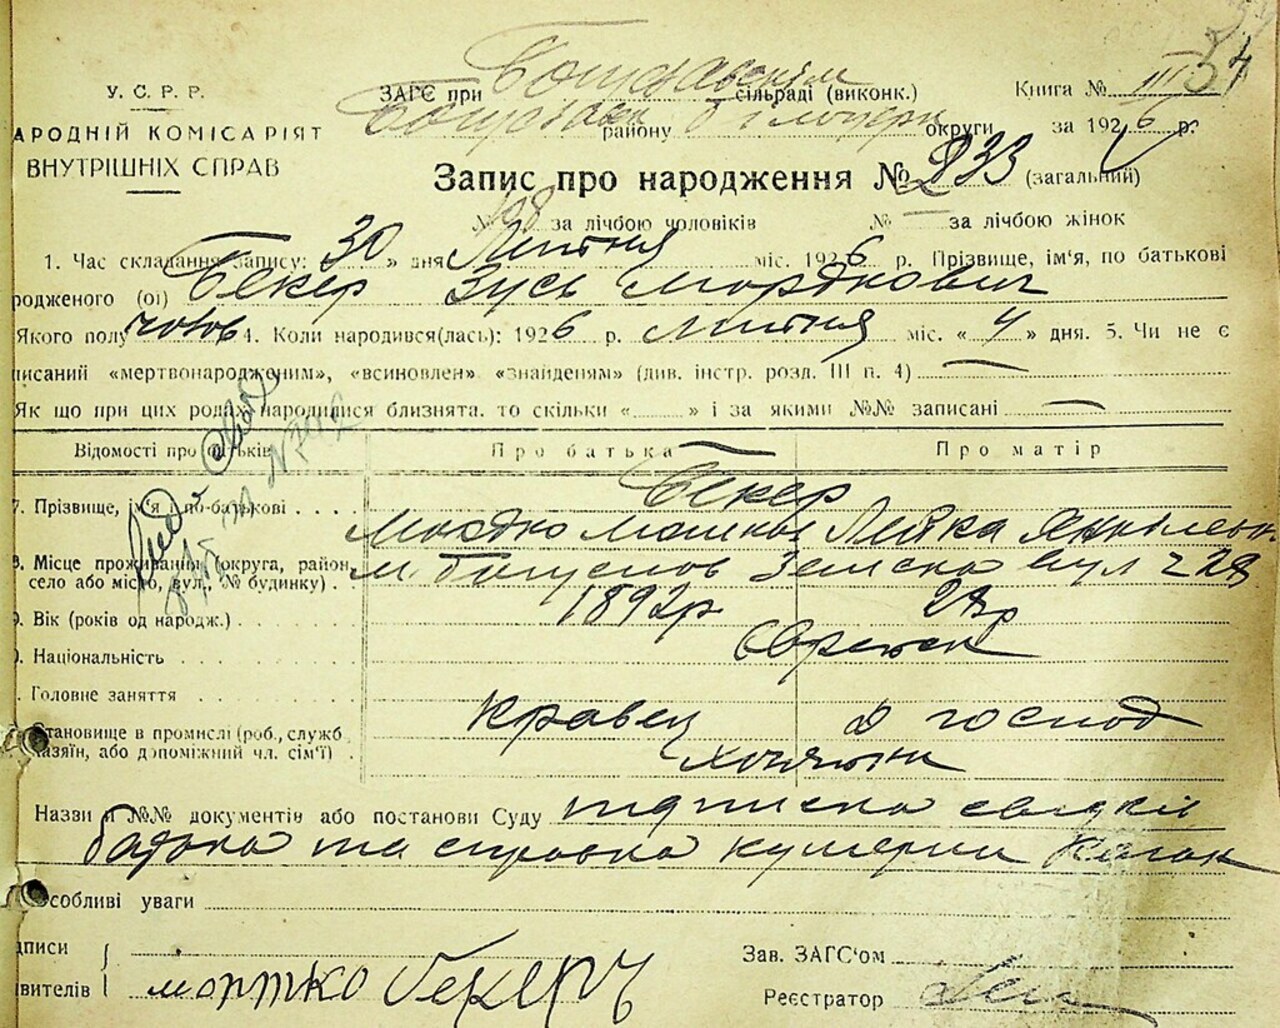 У. С. Р. Р.
АРОДНІЙ КОМІСАРІЯТ
ВНУТРІШНІХ СПРАВ
ЗАГС при Богуславськім сільраді (виконк.)
Книга № III
34
району округи за 1926 р.
Запис про народження № 233 (загальний)
№ 108 за лічбою чоловіків № — за лічбою жінок
1. Час складання запису: 30 » дня Липня міс. 1926 р. Прізвище, ім'я, по батькові
родженого (ої) Бекер Зусь Мордкович
Якого полу чолов 4. Коли народився(лась): 1926 р. Липня міс. « 4 » дня. 5. Чи не є
писаний «мертвонародженим», «всиновлен» «знайденям» (див. інстр. розд. III п. 4) —
Як що при цих родах народилися близнята, то скільки « » і за якими №№ записані —
Відомості про батьків Про батька Про матір
7. Прізвище, ім'я і по-батькові Бекер
Мордко Лейка
8. Місце проживання (округа, район,
село або місто, вул., № будинку) м. Богуслав Земська вул ч 28
9. Вік (років од народж.) 1892р
. Національність Єврейск
. Головне заняття
Кравец д господ
Становище в промислі (роб., служб
хазяїн, або допоміжний чл. сім'ї)
Назви й №№ документів або постанови Суду підписка свидків
батька та справка Коган
Особливі уваги
дписи
явителів
мортко бекерч
Зав. ЗАГС'ом
Реєстратор